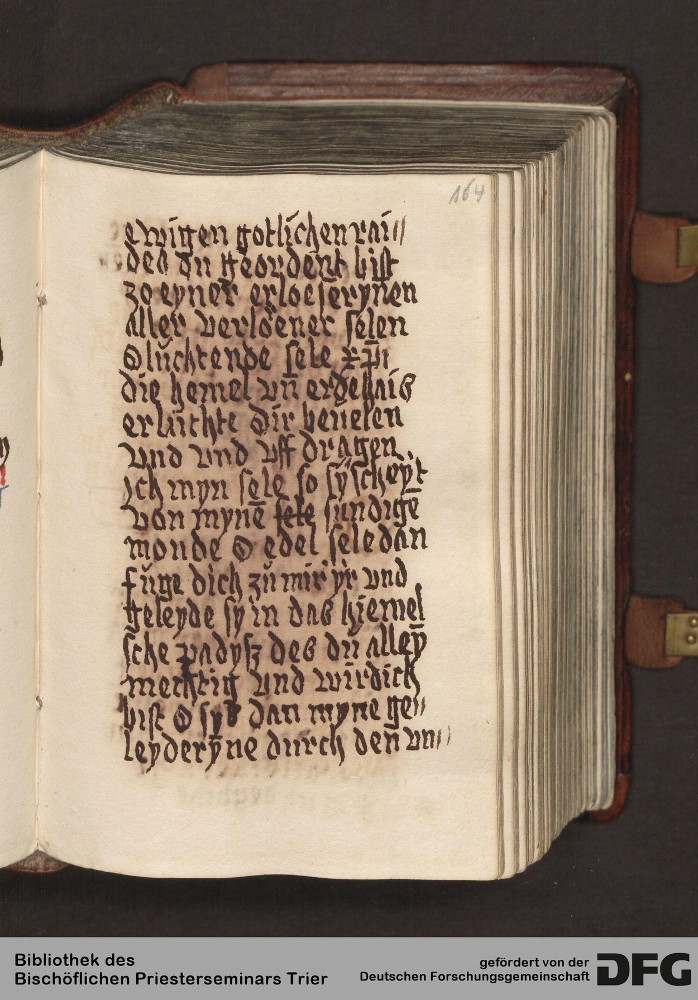 164
ewigen gotlichen rai//
des dü geordent bist
zo eyner erloeseryñen
aller verloeener selen
O lüchtende sele xp̄i
die hemel vn̄ erde hais
erlüchte Dir beuelen
vnd vnd vff dragen
ich myn sele so sy scheÿt
van mynē sele sundigē
monde O edel sele dan
füge dich zü mir ÿr vnd
geleyde sy in das hiemel
sche padysz des dü alleÿ
mechtig vnd wirdich
bist O syß dan myne ge//
leyderȳne durch den vn//
Bibliothek des
Bischöflichen Priesterseminars Trier
gefördert von der
Deutschen Forschungsgemeinschaft
DFG